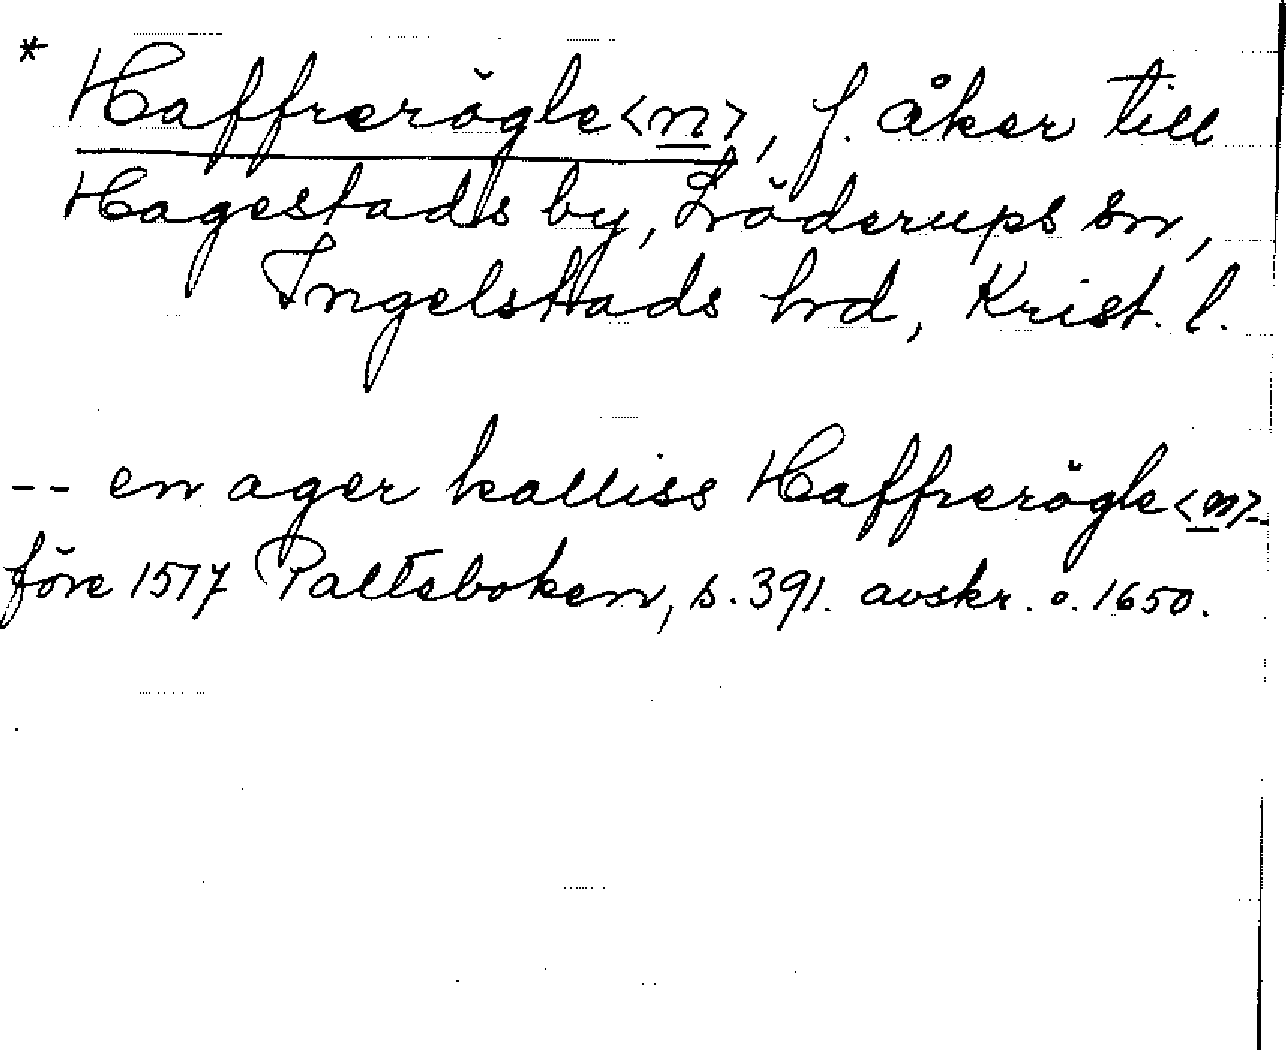 * Haffrerögle<n>, f. åker till
Hagestads by, Löderups sn,
Ingelstads hrd, Krist. l.
-- en ager kalliss Haffrerögle<n>-
före 1517 Palteboken, s. 391. avskr. o. 1650.